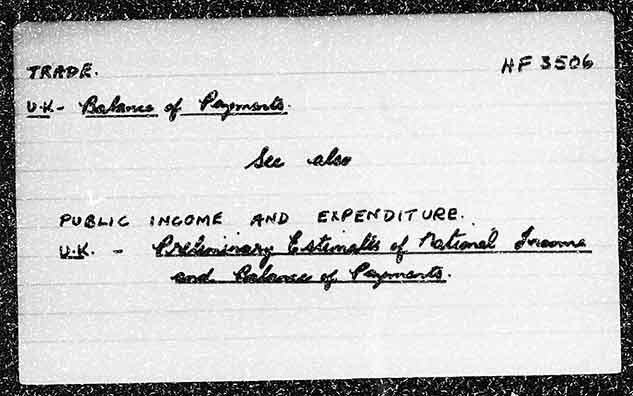 TRADE. HF 3506
U.K - Balance of Payments.
See also
PUBLIC INCOME AND EXPENDITURE.
U.K. - Preliminary Estimates of National Income
and Balance of Payments.